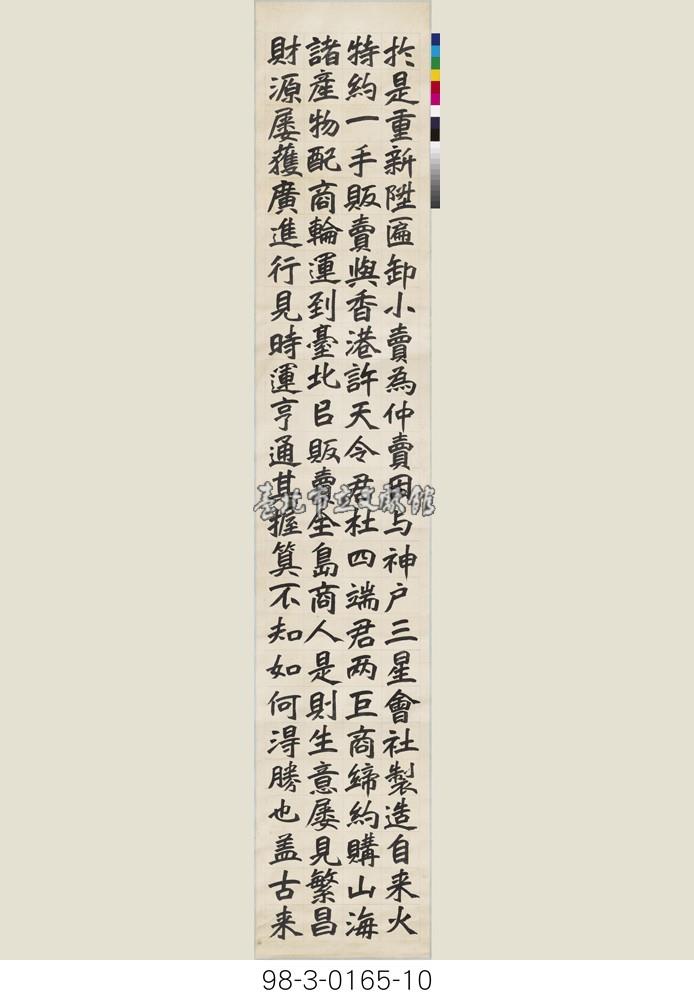 扵是重新陞匾卸小賣為仲賣因与神户三星會社製造自来火
特約一手販賣與香港許天令君杜四端君两巨商締約購山海
諸產物配商輪運到臺北㠯販賣全島商人是則生意屡見繁昌
財源屡獲廣進行見時運亨通其握算不知如何淂勝也盖古来
臺北市立文獻館
98-3-0165-10